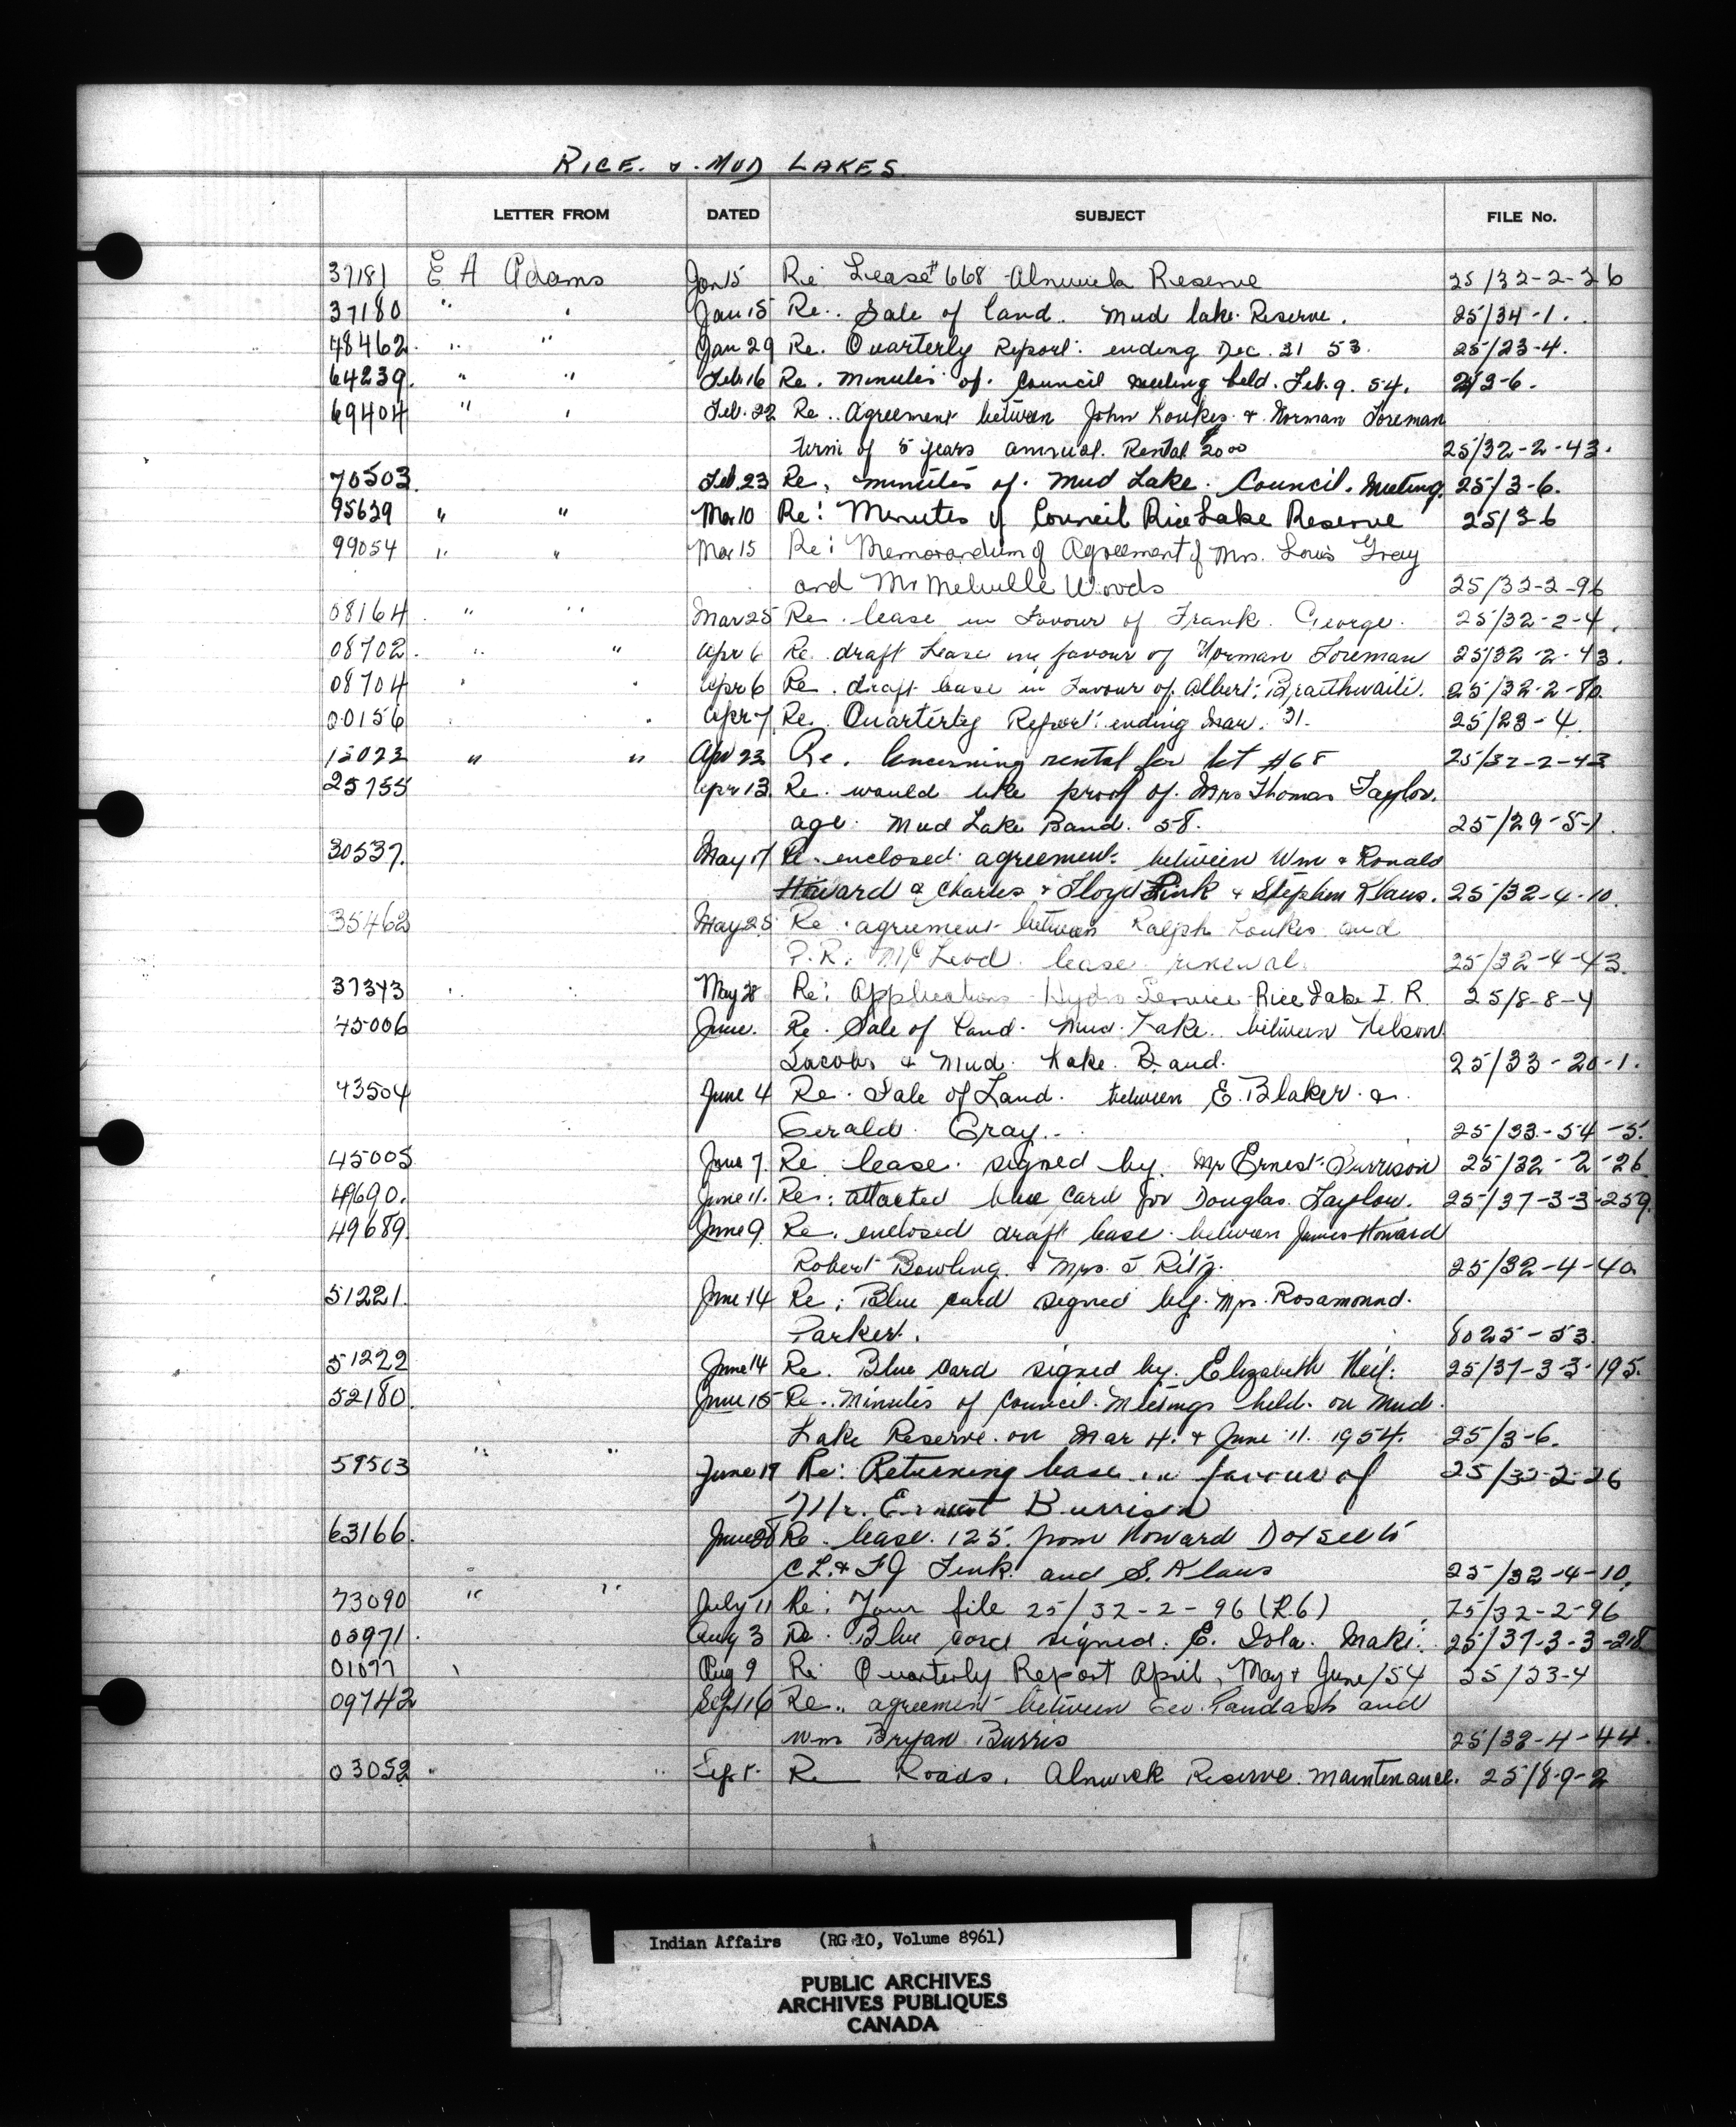 RICE. & . MUD LAKES
LETTER FROM DATED SUBJECT FILE No.
37181 E A Adams Jan 15 Re: Lease # 668 Alnwick Reserve 25/32-2-26
37180 " " Jan 15 Re.. Sale of land. Mud lake Reserve. 25/34-1.
48462. " " Jan 29 Re. Quarterly Report: ending Dec. 31 53. 25/23-4.
64239. " " Feb. 16 Re. minutes of. Council meeting held. Feb. 9. 54. 25/3-6.
69404 " " Feb. 22 Re.. Agreement between John Loukes. & Norman Foreman
term of 5 years annual. Rental $20 00 25/32-2-43.
70503. Feb. 23 Re, minutes of. Mud Lake. Council. Meeting. 25/3-6.
95639 " " Mar 10 Re: Minutes of Council Rice Lake Reserve 25/3-6
99054 " " Mar 15 Re: Memorandum of Agreement of Mrs. Louis Gray
and Mr Melville Woods 25/32-2-96
08164 " " Mar 25 Re. lease in Favour of Frank. George. 25/32-2-4.
08702. " " Apr 6 Re. draft Lease in favour of Norman Foreman 25/32-2-43.
08704 " " Apr 6 Re. draft lease in Favour of. Albert. Braithwaite. 25/32-2-80.
00156 " " Apr 7 Re. Quarterly Report: ending Mar. 31. 25/23-4.
15023 " " Apr 23 Re. Concerning rental for lot #68 25/32-2-43
25755 Apr 13. Re. would like proof of. Mrs Thomas Taylor.
age. Mud Lake Band. 58. 25/29-5-1.
30537. May 17 Re. enclosed agreement. between Wm & Ronald
Howard & Charles & Floyd Fink & Stephen Klaus. 25/32-4-10.
35462 May 25 Re. agreement between Ralph Loukes and
P.R. McLeod. lease renewal. 25/32-4-43.
37343 May 28 Re: Applications Hydro Service Rice Lake I. R. 25/8-8-4
45006 June. Re. Sale of Land. Mud. Lake. between Nelson
Jacobs & Mud. Lake. Band. 25/33-20-1.
43504 June 4 Re. Sale of Land. between E. Blaker. &
Gerald. Gray.. 25/33-54-5.
45005 June 7. Re lease. signed by. Mr Ernest. Burrison 25/32-2-26
49690. June 11. Re: attached blue card for Douglas. Taylor. 25/37-3-3-259.
49689. June 9. Re. enclosed draft lease. between James Howard
Robert Bowling. & Mrs. J Ritz. 25/32-4-40.
51221. June 14 Re: Blue card signed by. Mrs. Rosamound.
Parker. 8025-53.
51222 June 14 Re. Blue card signed by. Elizabeth Heif. 25/37-3-3-195.
52180. June 15 Re.. Minutes of Council. Meetings held. on Mud.
Lake Reserve. on Mar 4. & June 11. 1954. 25/3-6.
59503 " " June 19 Re: Returning lease in favour of 25/32-2-26
Mr. Ernest Burrison
63166. June 28 Re. lease. 125. from Howard
C L. & F J Fink. and S. Klaus 25/32-4-10.
73090 " " July 11 Re: Your file 25/32-2-96 (R.6) 25/32-2-96
03971. Aug 3 Re. Blue card signed. E. Isla. Maki. 25/37-3-3-218.
01077 Aug 9 Re: Quarterly Report April, May & June/54 25/23-4
09742 Sept 16 Re.. agreement between Geo. Paudash and
Wm Bryan Burris 25/32-4-44.
03052. " " Sept. Re Roads. Alnwick Reserve. Maintenance. 25/8-9-2
Indian Affairs (RG 10, Volume 8961)
PUBLIC ARCHIVES
ARCHIVES PUBLIQUES
CANADA